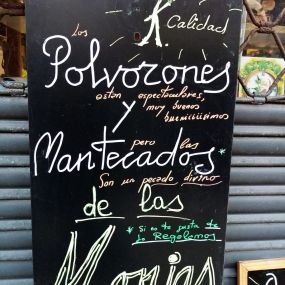 K. Calidad
los
Polvorones
están espectaculares,
muy buenos
buenisisimos
y
pero las
Mantecados*
Son un pecado divino
de las
* Si no te gusta te
lo Regalamos
Monjas